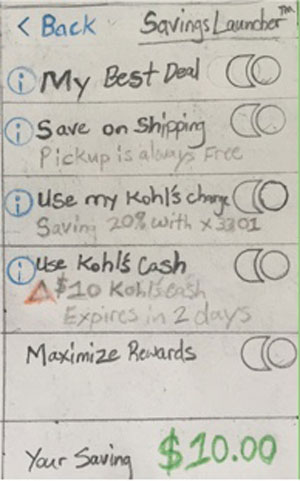 < Back Savings Launcher™
i My Best Deal
i Save on Shipping
Pickup is always Free
i Use my Kohl's charge
Saving 20% with x3301
i Use Kohl's Cash
$10 Kohl's cash
Expires in 2 days
Maximize Rewards
Your Saving $10.00